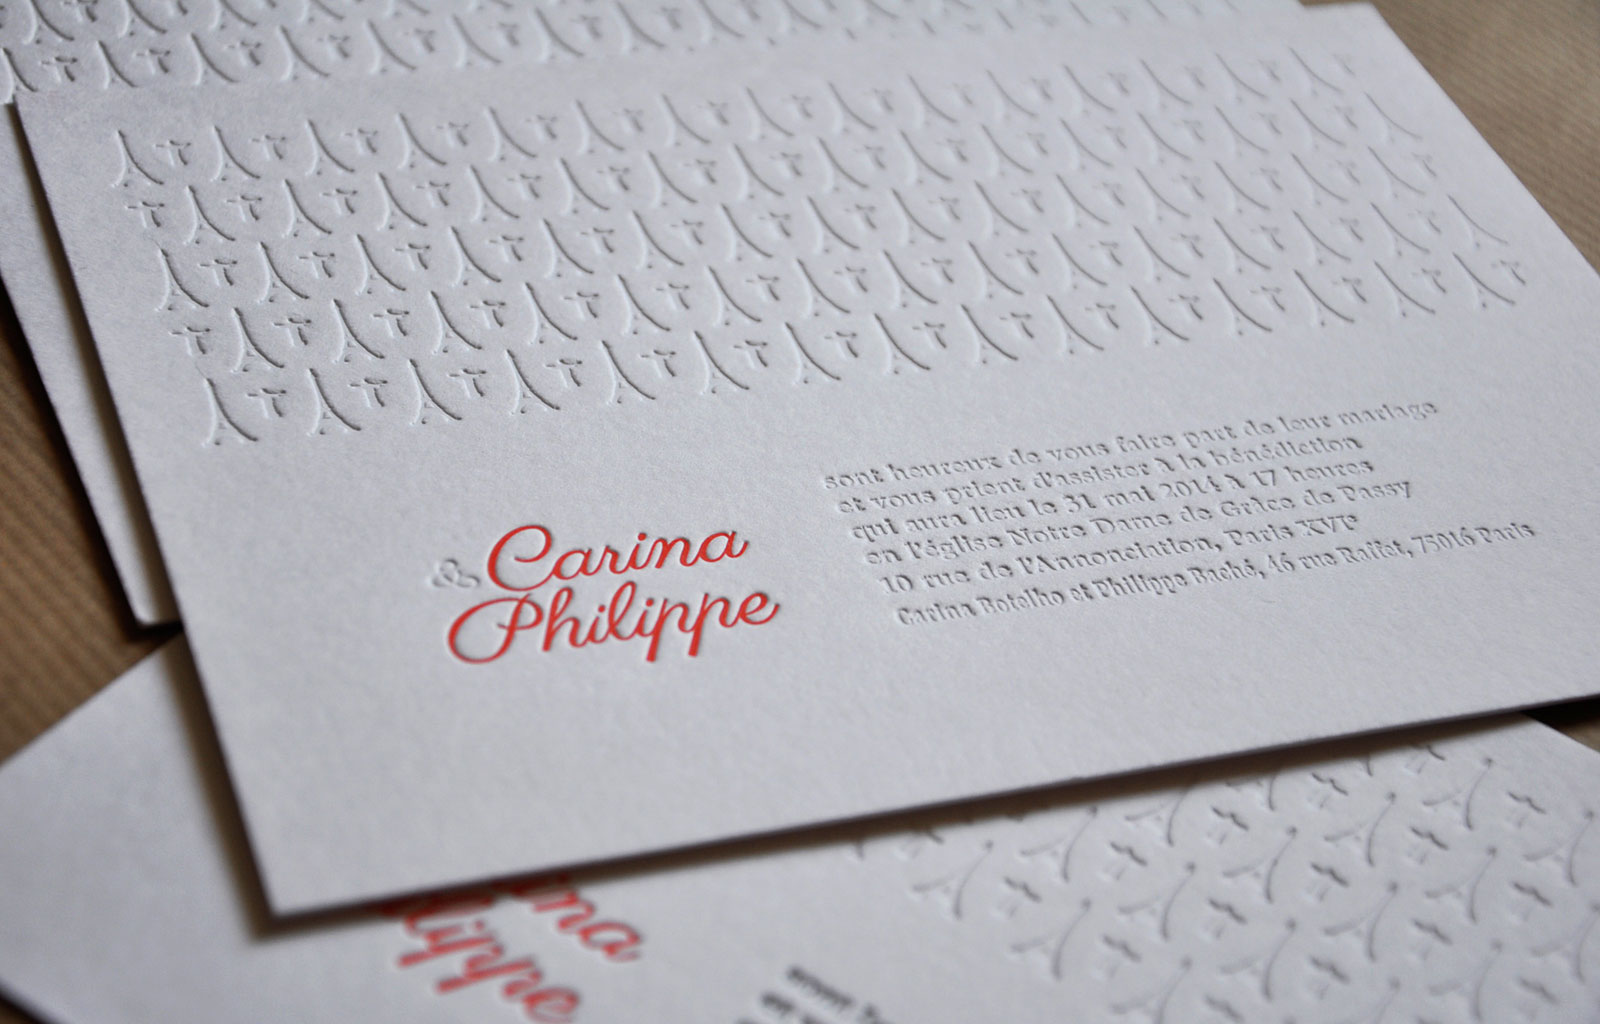 Carina
& Philippe
sont heureux de vous faire part de leur mariage
et vous prient d'assister à la bénédiction
qui aura lieu le 31 mai 2014 à 17 heures
en l'église Notre Dame de Grâce de Passy
10 rue de l'Annonciation, Paris XVIe
Carina Botelho et Philippe Baché, 46 rue Raffet, 75016 Paris
ina
lippe